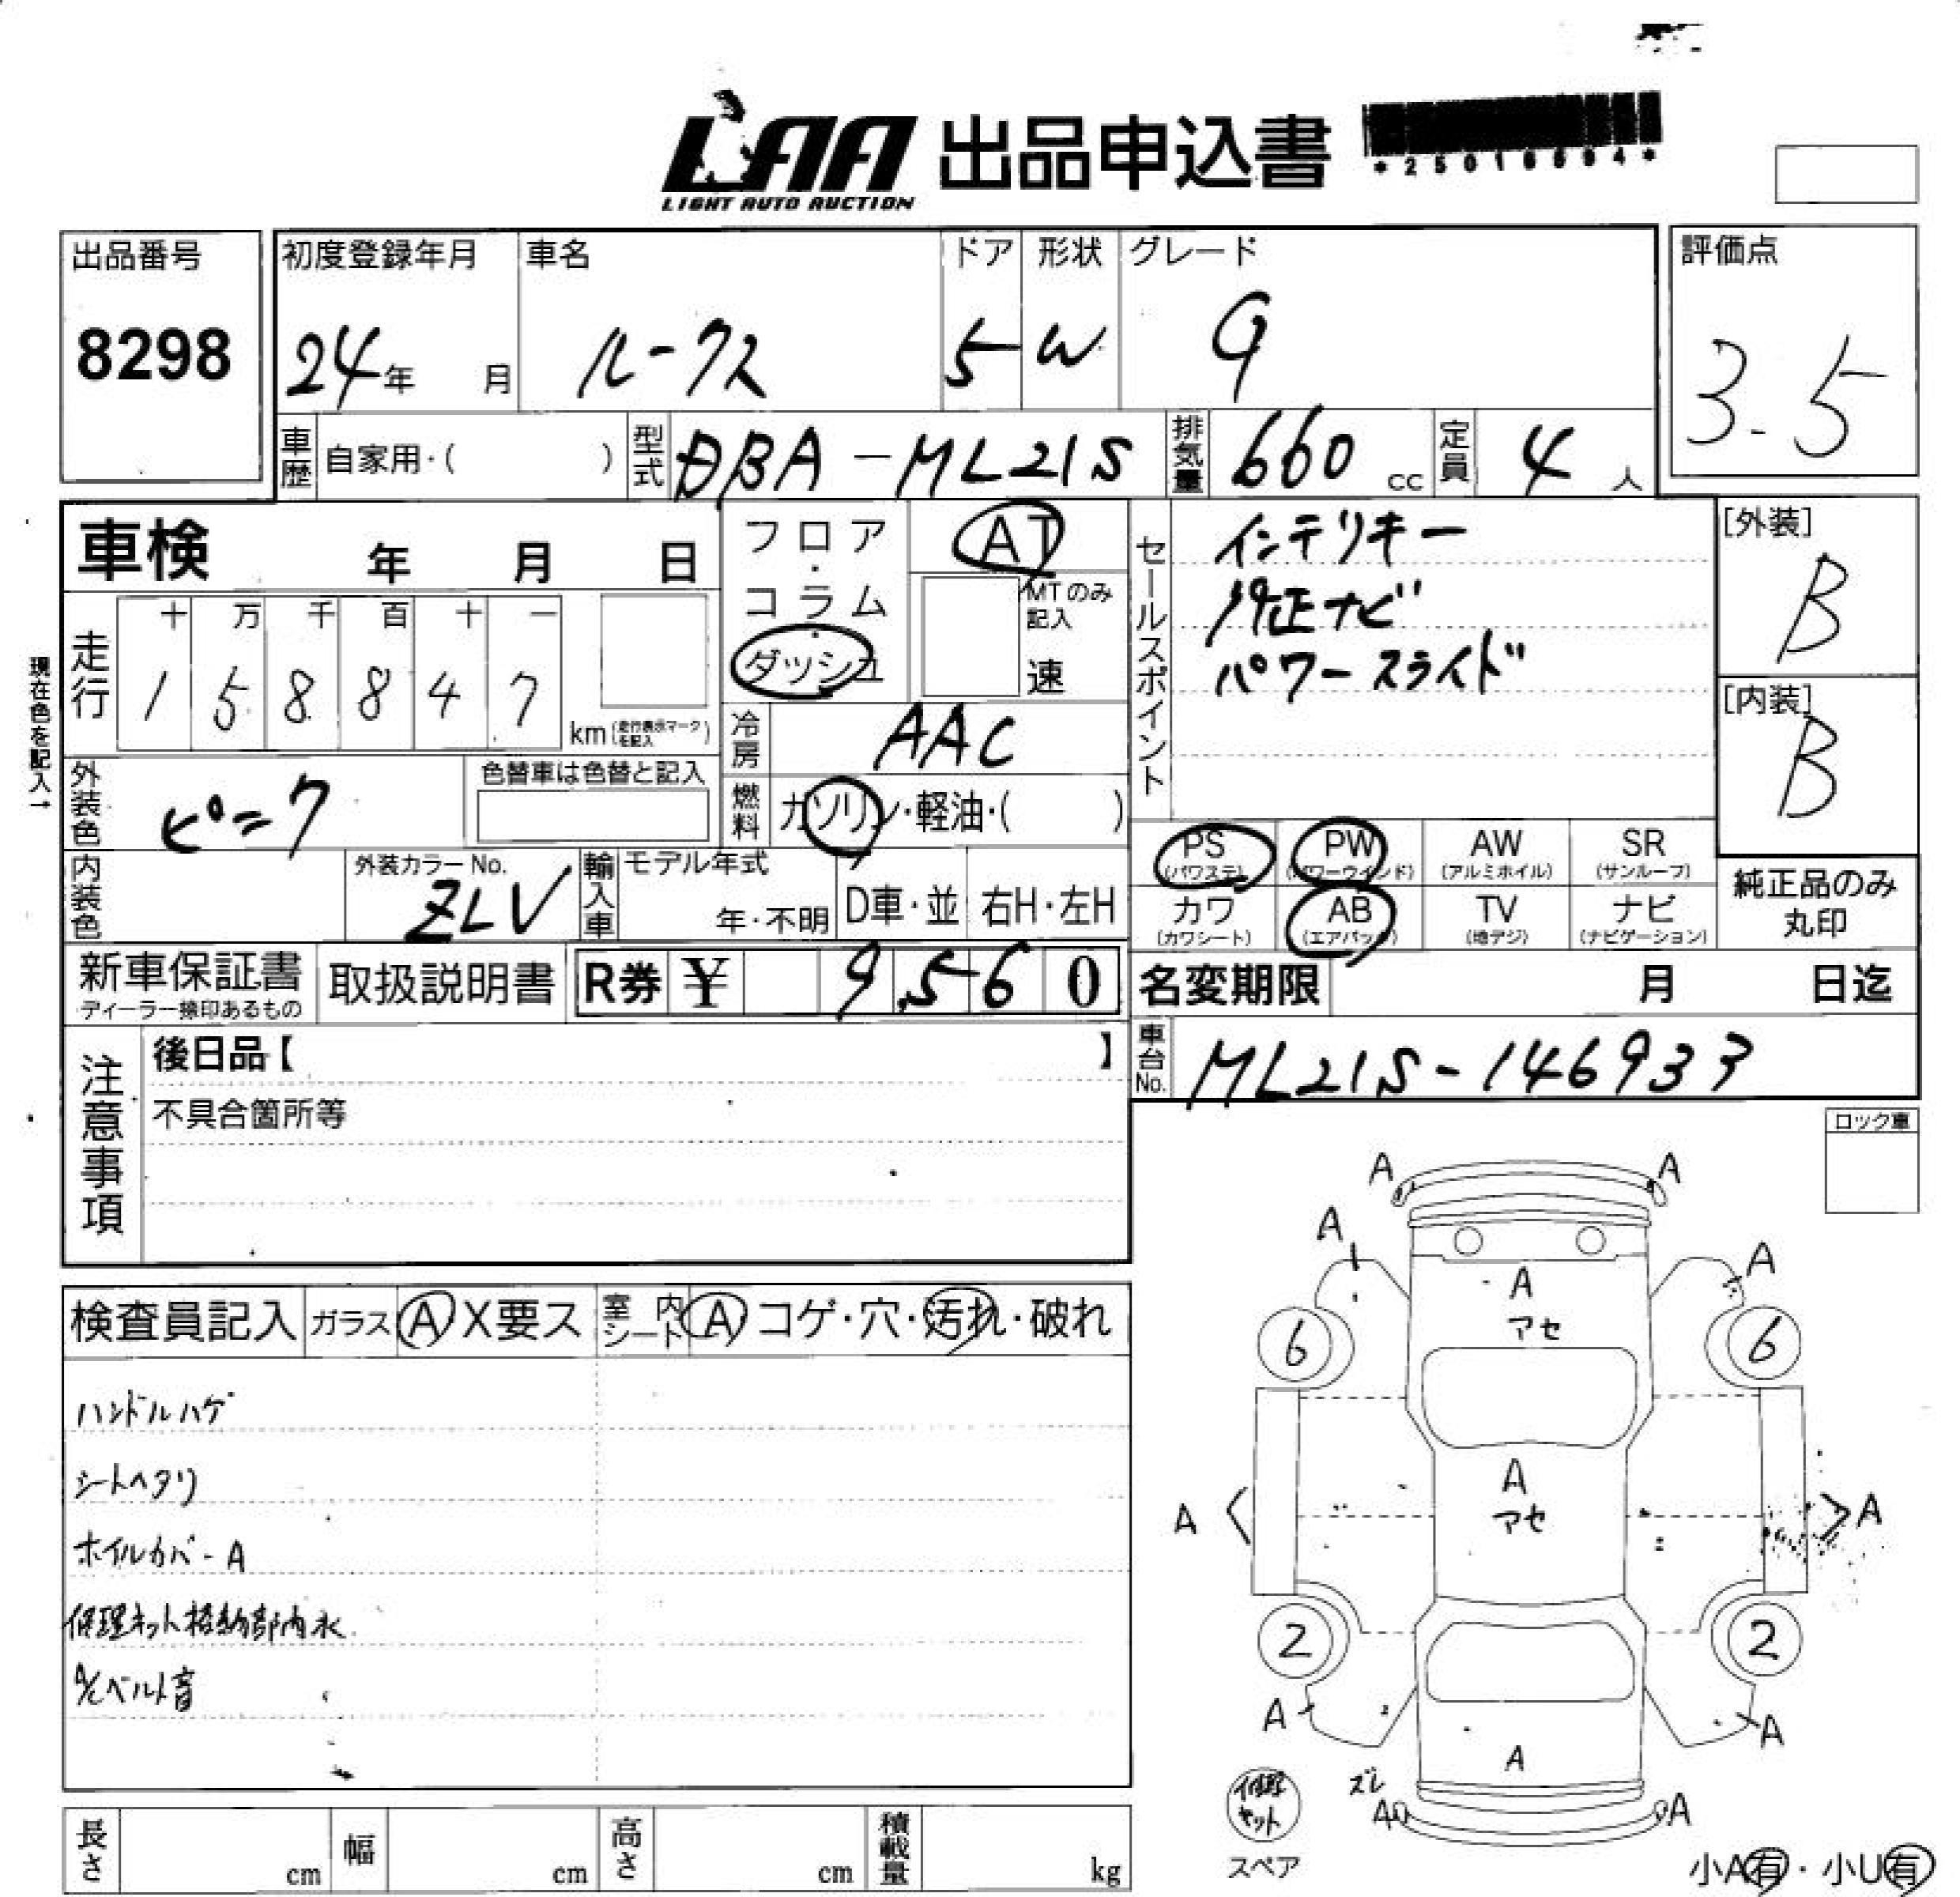 LAA 出品申込書
LIGHT AUTO AUCTION
出品番号
8298
初度登録年月 車名 ドア 形状 グレード
24年 月 ルークス 5 W G
評価点
3.5
車歴 自家用・( ) 型式 DBA-ML21S 排気量 660 cc 定員 4 人
車検 年 月 日
フロア・コラム・ダッシュ
AT
MTのみ記入
速
セールスポイント
インテリキー
純正ナビ
パワースライド
[外装]
B
[内装]
B
現在色を記入→
走行
十 万 千 百 十 一
1 5 8 8 4 7
km(走行表示マークを記入)
冷房 AAC
外装色 ピンク
色替車は色替と記入
燃料 ガソリン・軽油・( )
内装色
外装カラーNo.
ZLV
輸入車 モデル年式
年・不明 D車・並 右H・左H
PS (パワステ) PW (パワーウインド) AW (アルミホイル) SR (サンルーフ)
カワ (カワシート) AB (エアバック) TV (地デジ) ナビ (ナビゲーション)
純正品のみ
丸印
新車保証書
ディーラー捺印あるもの
取扱説明書 R券 ¥ 9,560
名変期限 月 日迄
車台No. ML21S-146933
注意事項
後日品【 】
不具合箇所等
ロック車
検査員記入 ガラス A X要ス 室内シート A コゲ・穴・汚れ・破れ
ハンドルハゲ
シートヘタリ
ホイルカバーA
修理キット格納部内水
A/Cベルト音
A A
A A
A
アセ
6 6
A
アセ
A A
2 2
A A
A
修理キット
スペア
ズレ
A A
小A有・小U有
長さ cm 幅 cm 高さ cm 積載量 kg